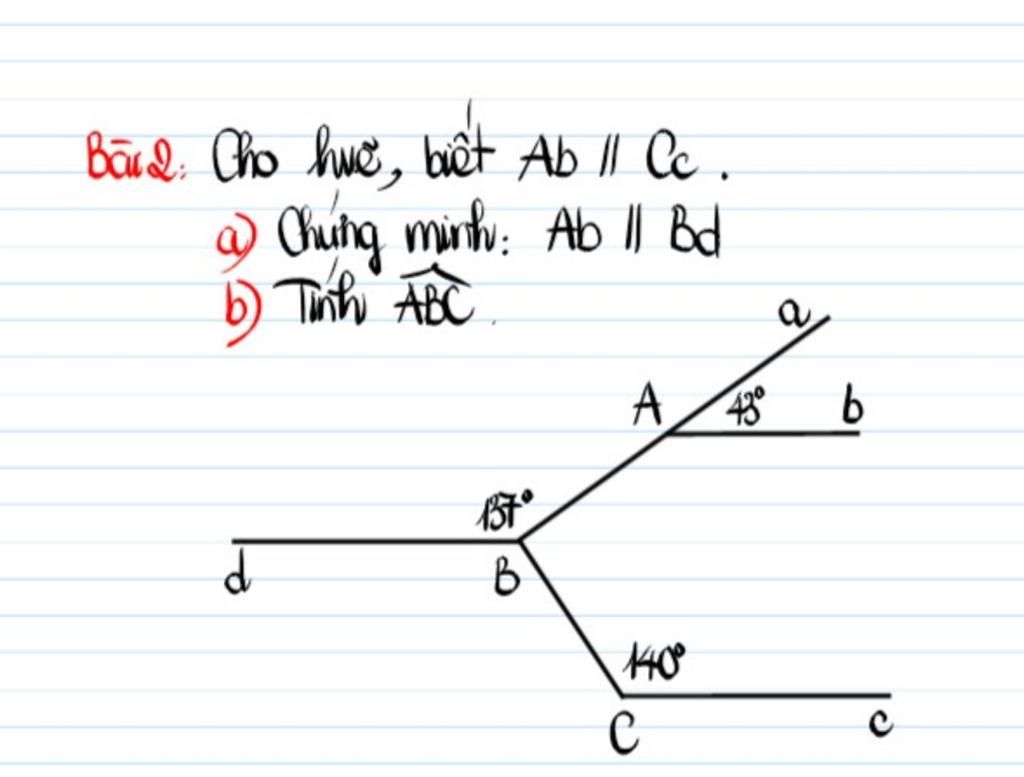 Bài 2: Cho hvẽ, biết Ab // Cc .
a) Chứng minh: Ab // Bd
b) Tính ABC .
a
A 43° b
137°
d B
140°
C c